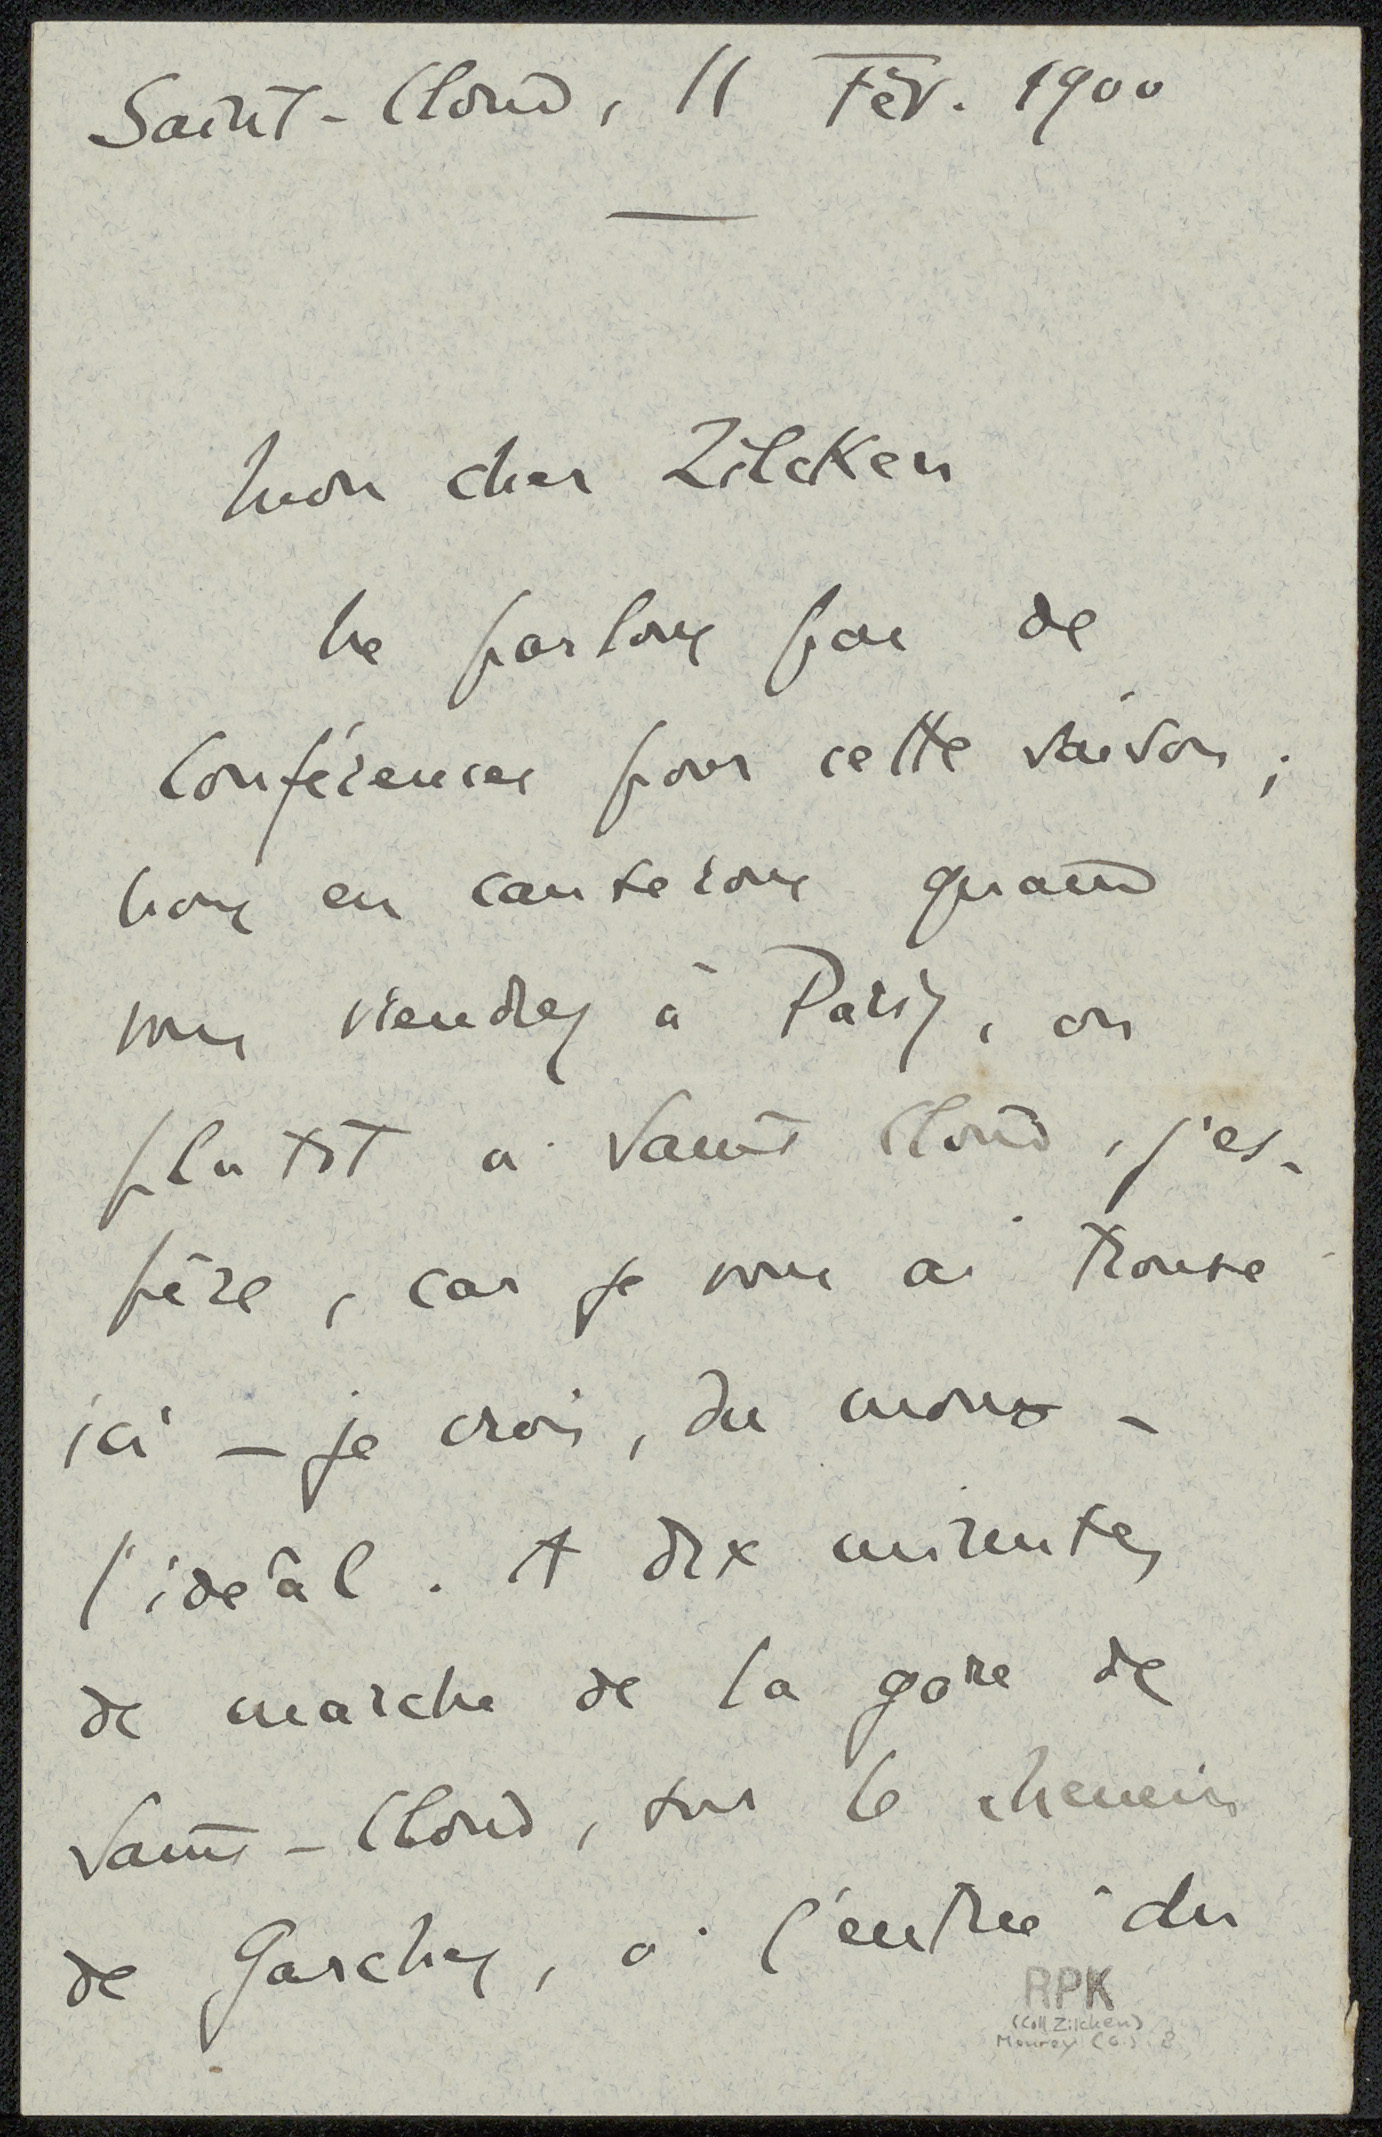 Saint-Cloud, 11 Fév. 1900
Mon cher Zilcken
ne parlons pas de
conférences pour cette saison ;
nous en causerons quand
vous viendrez à Paris, ou
plutôt à Saint Cloud, j'es-
père, car je nous ai trouvé
ici — je crois, du moins —
l'idéal. A dix minutes
de marche de la gare de
Saint-Cloud, sur le chemin
de Garches, à l'entrée du
RPK
(Coll Zilcken)
Mourey (G.) 8